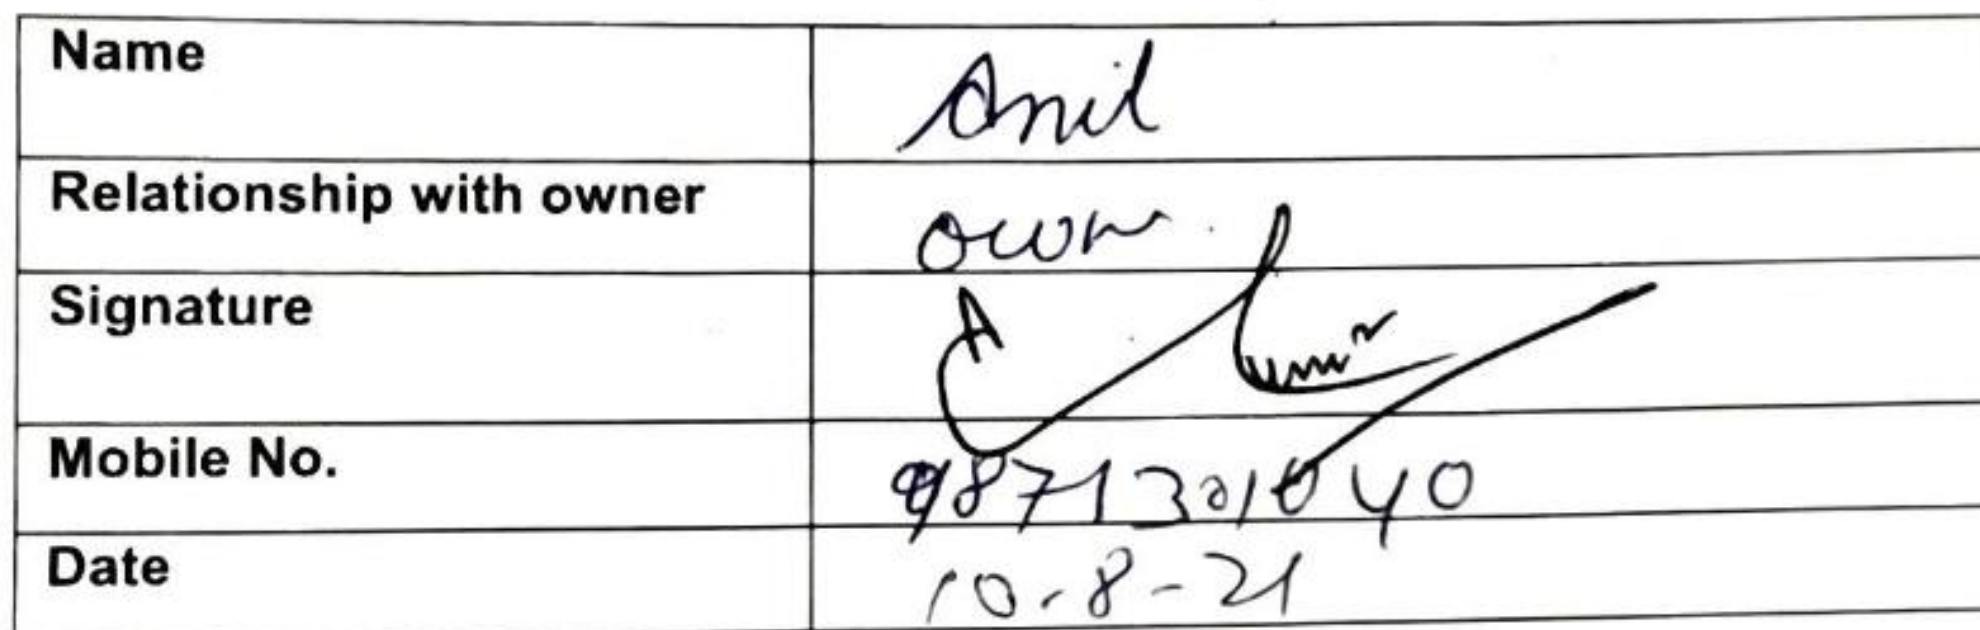 Name Anil
Relationship with owner owner
Signature
Mobile No. 9871301040
Date 10-8-21